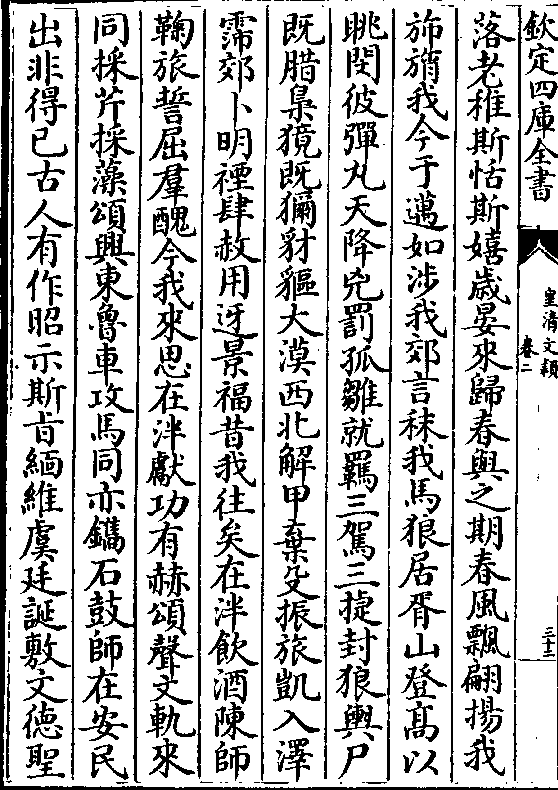 欽定四庫全書
皇清文穎
卷二
三十二
落老稚斯恬斯嬉歲晏來歸春與之期春風飄翩揚我
斾旓我今于邁如涉我郊言秣我馬狼居胥山登髙以
眺閔彼彈丸天降兇罰孤雛就羈三駕三捷封狼輿尸
既腊梟獍既獮豺貙大漠西北解甲棄殳振旅凱入澤
霈郊卜明禋肆赦用迓景福昔我往矣在泮飲酒陳師
鞠旅誓屈羣醜今我來思在泮獻功有赫頌聲文軌來
同採芹採藻頌興東魯車攻馬同亦鐫石鼓師在安民
出非得已古人有作昭示斯旨緬維虞廷誕敷文徳聖